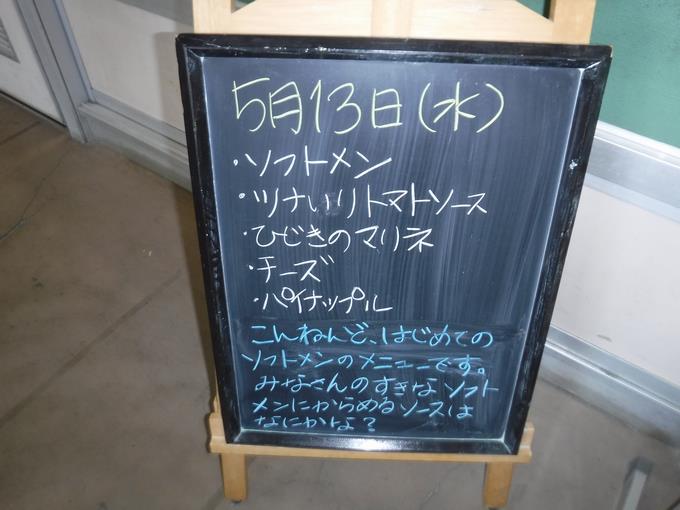 5月13日(水)
・ソフトメン
・ツナいりトマトソース
・ひじきのマリネ
・チーズ
・パイナップル
こんねんど、はじめての
ソフトメンのメニューです。
みなさんのすきなソフト
メンにからめるソースは
なにかな?